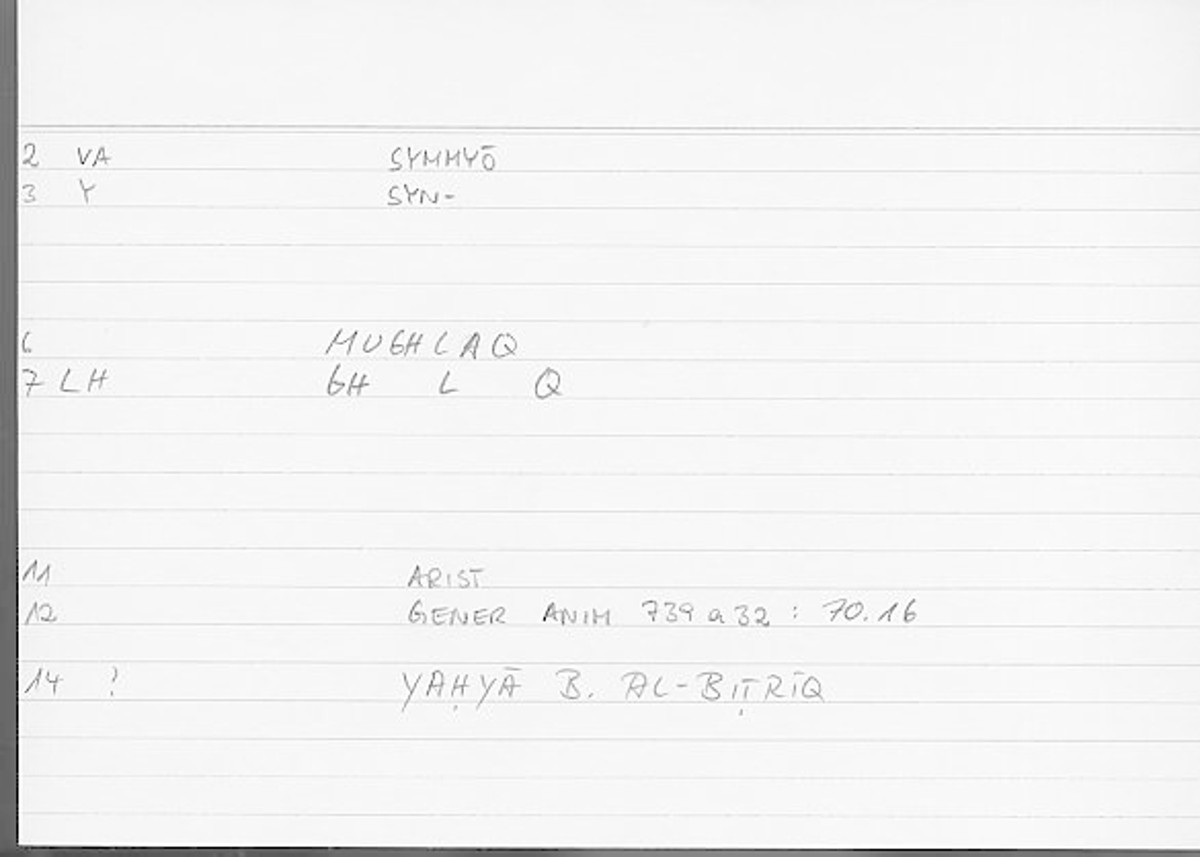 2 VA SYMMYŌ
3 Y SYN-
6 MUGHLAQ
7 LH GH L Q
11 ARIST
12 GENER ANIM 739 a 32 : 70.16
14 ? YAḤYĀ B. AL-BIṬRĪQ